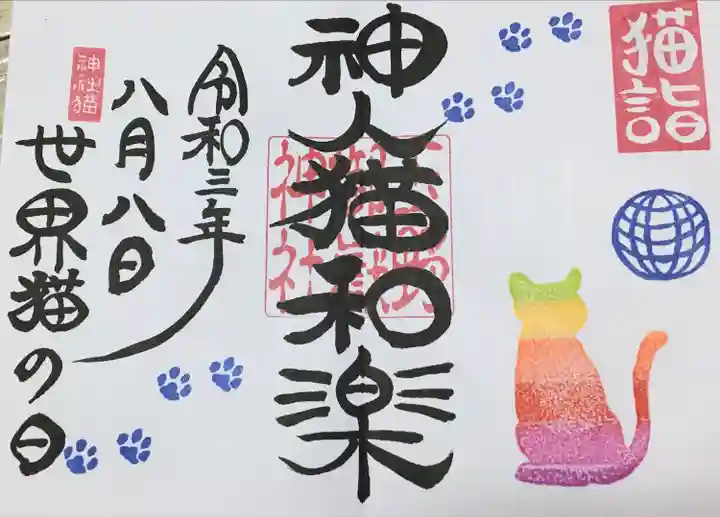 猫詣
神人猫和楽
令和三年
八月八日
世界猫の日
神社猫